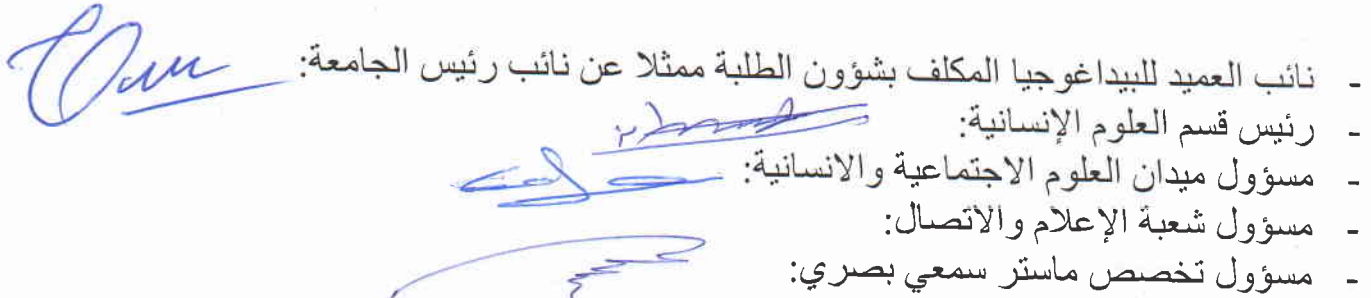 - نائب العميد للبيداغوجيا المكلف بشؤون الطلبة ممثلا عن نائب رئيس الجامعة:
- رئيس قسم العلوم الإنسانية:
- مسؤول ميدان العلوم الاجتماعية والانسانية:
- مسؤول شعبة الإعلام والاتصال:
- مسؤول تخصص ماستر سمعي بصري: